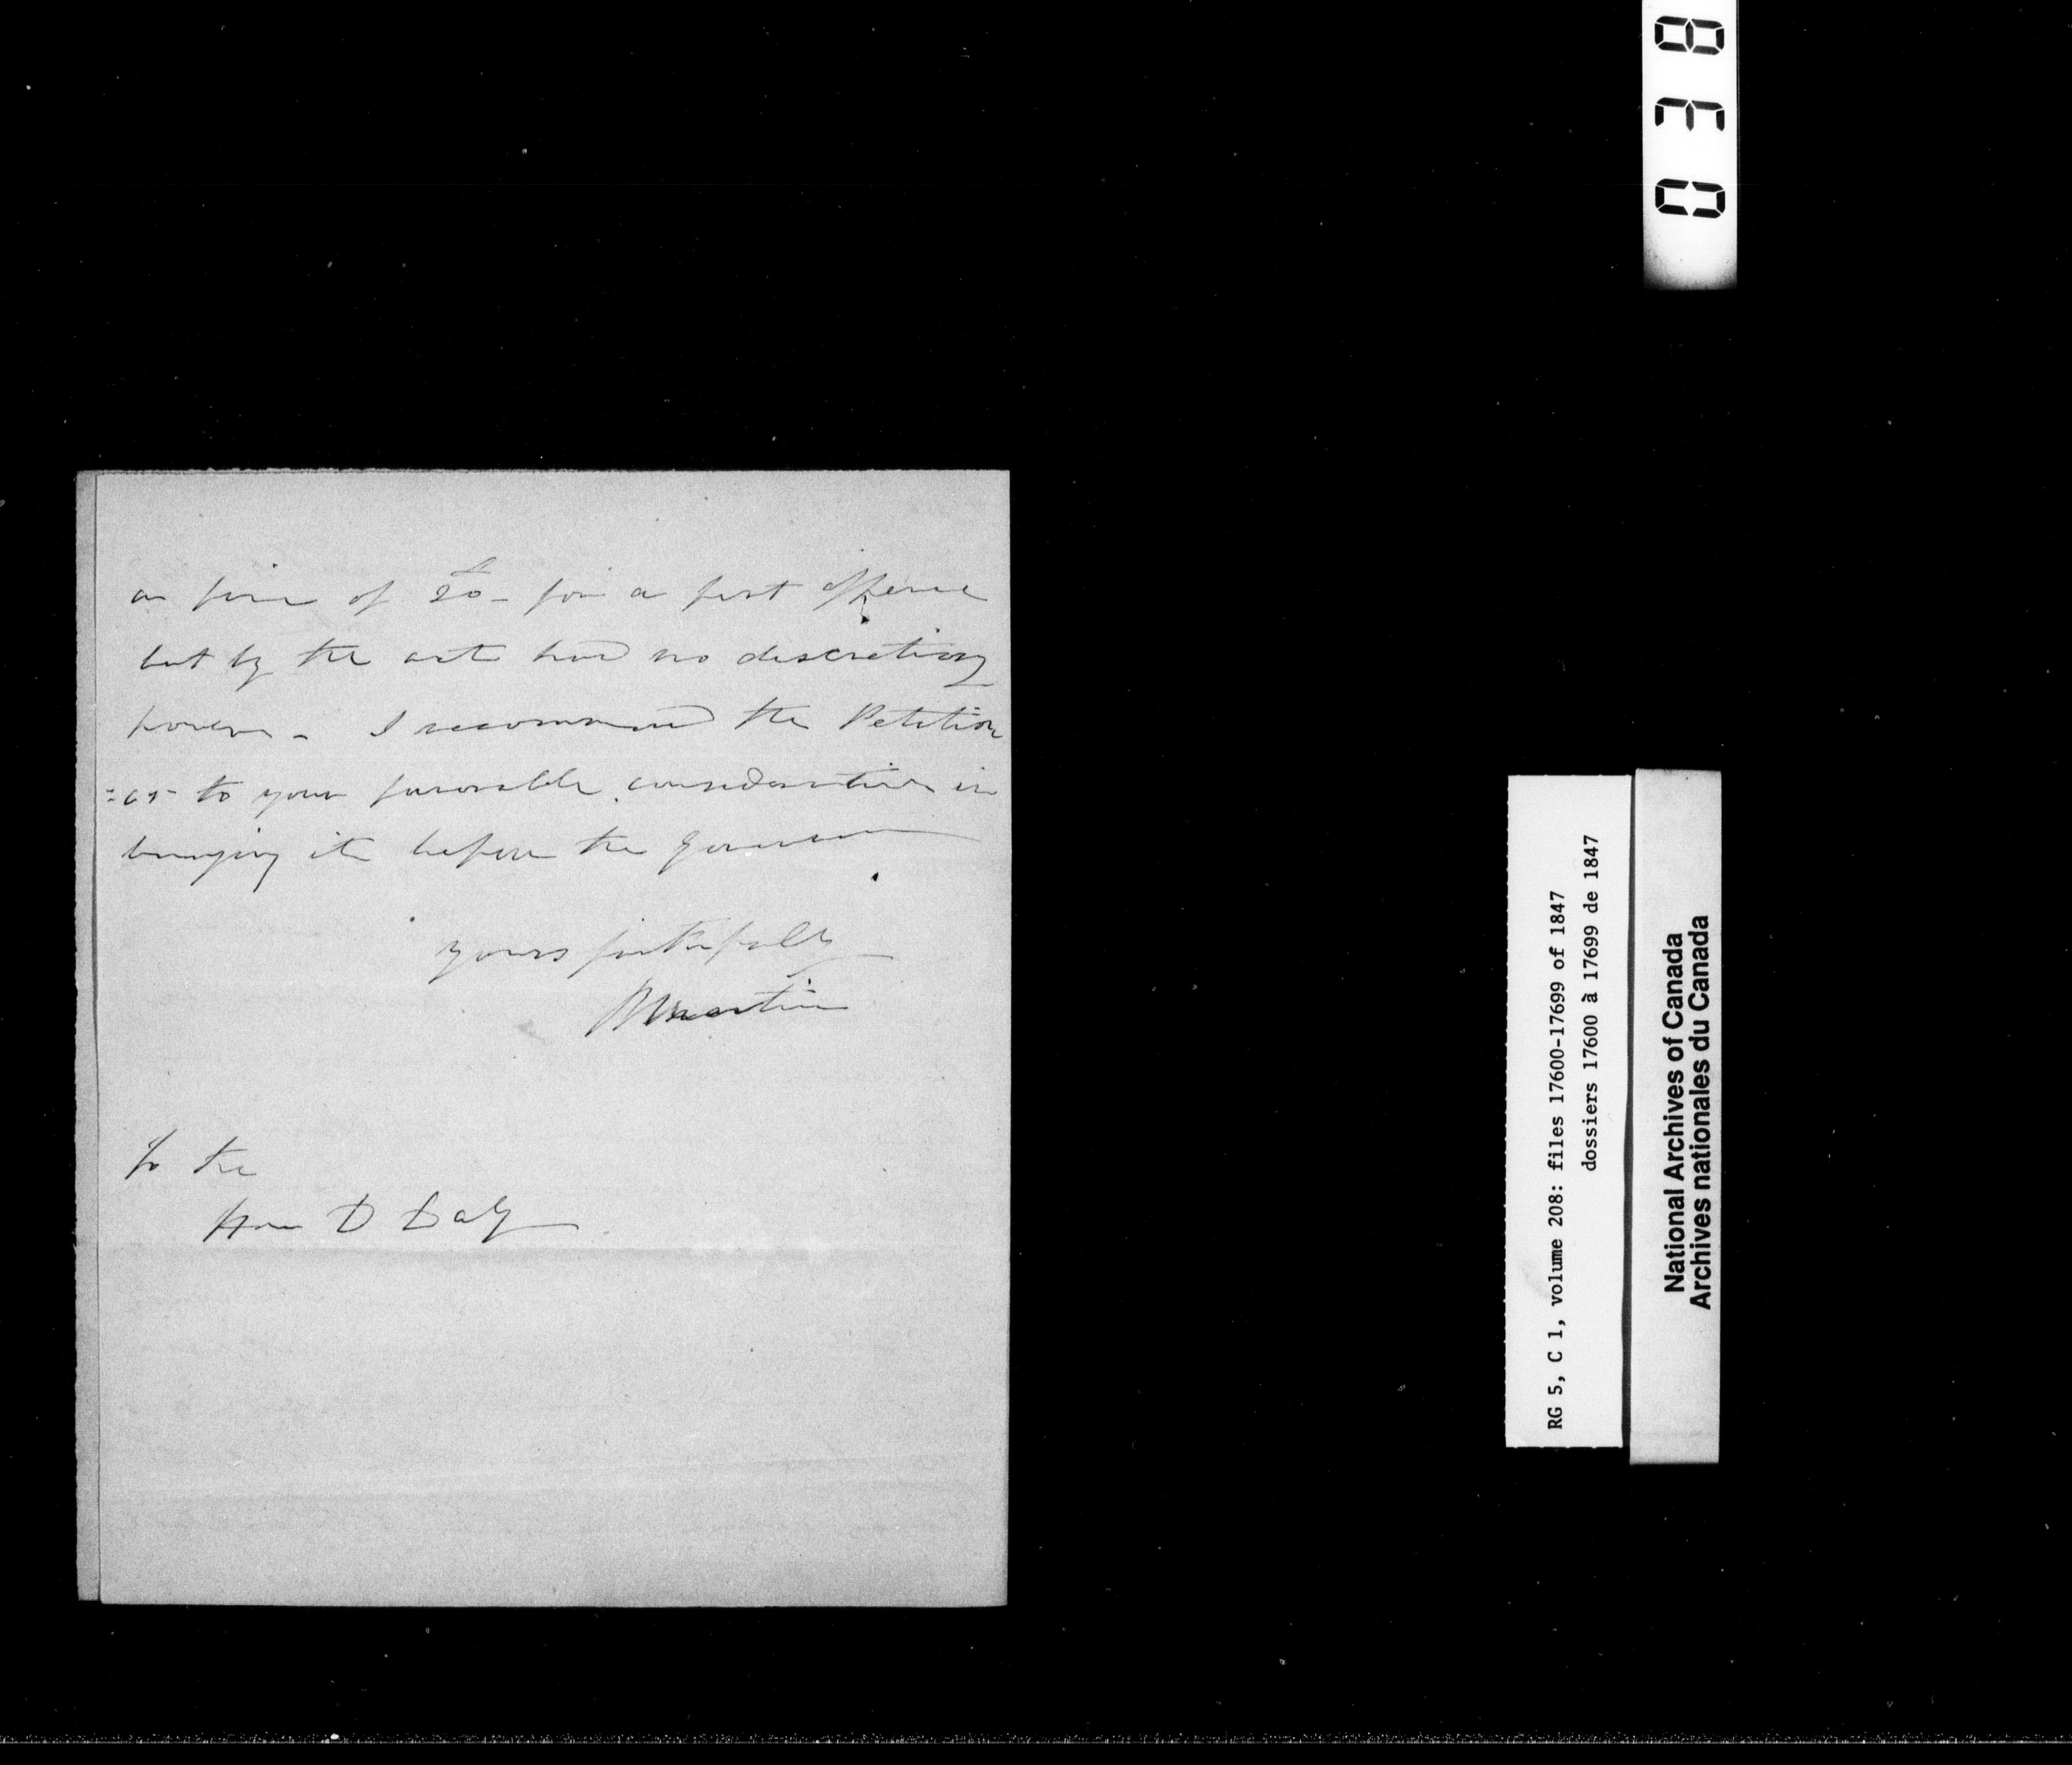 a fine of £20 - for a first offence
but by the act had no discretiony
power - I recommend the Petition
=er to your favorable consideration in
bringing it before the Governor
yours faithfully
Martin
To the
Hon D Daly
038
RG 5, C 1, volume 208: files 17600-17699 of 1847
dossiers 17600 à 17699 de 1847
National Archives of Canada
Archives nationales du Canada